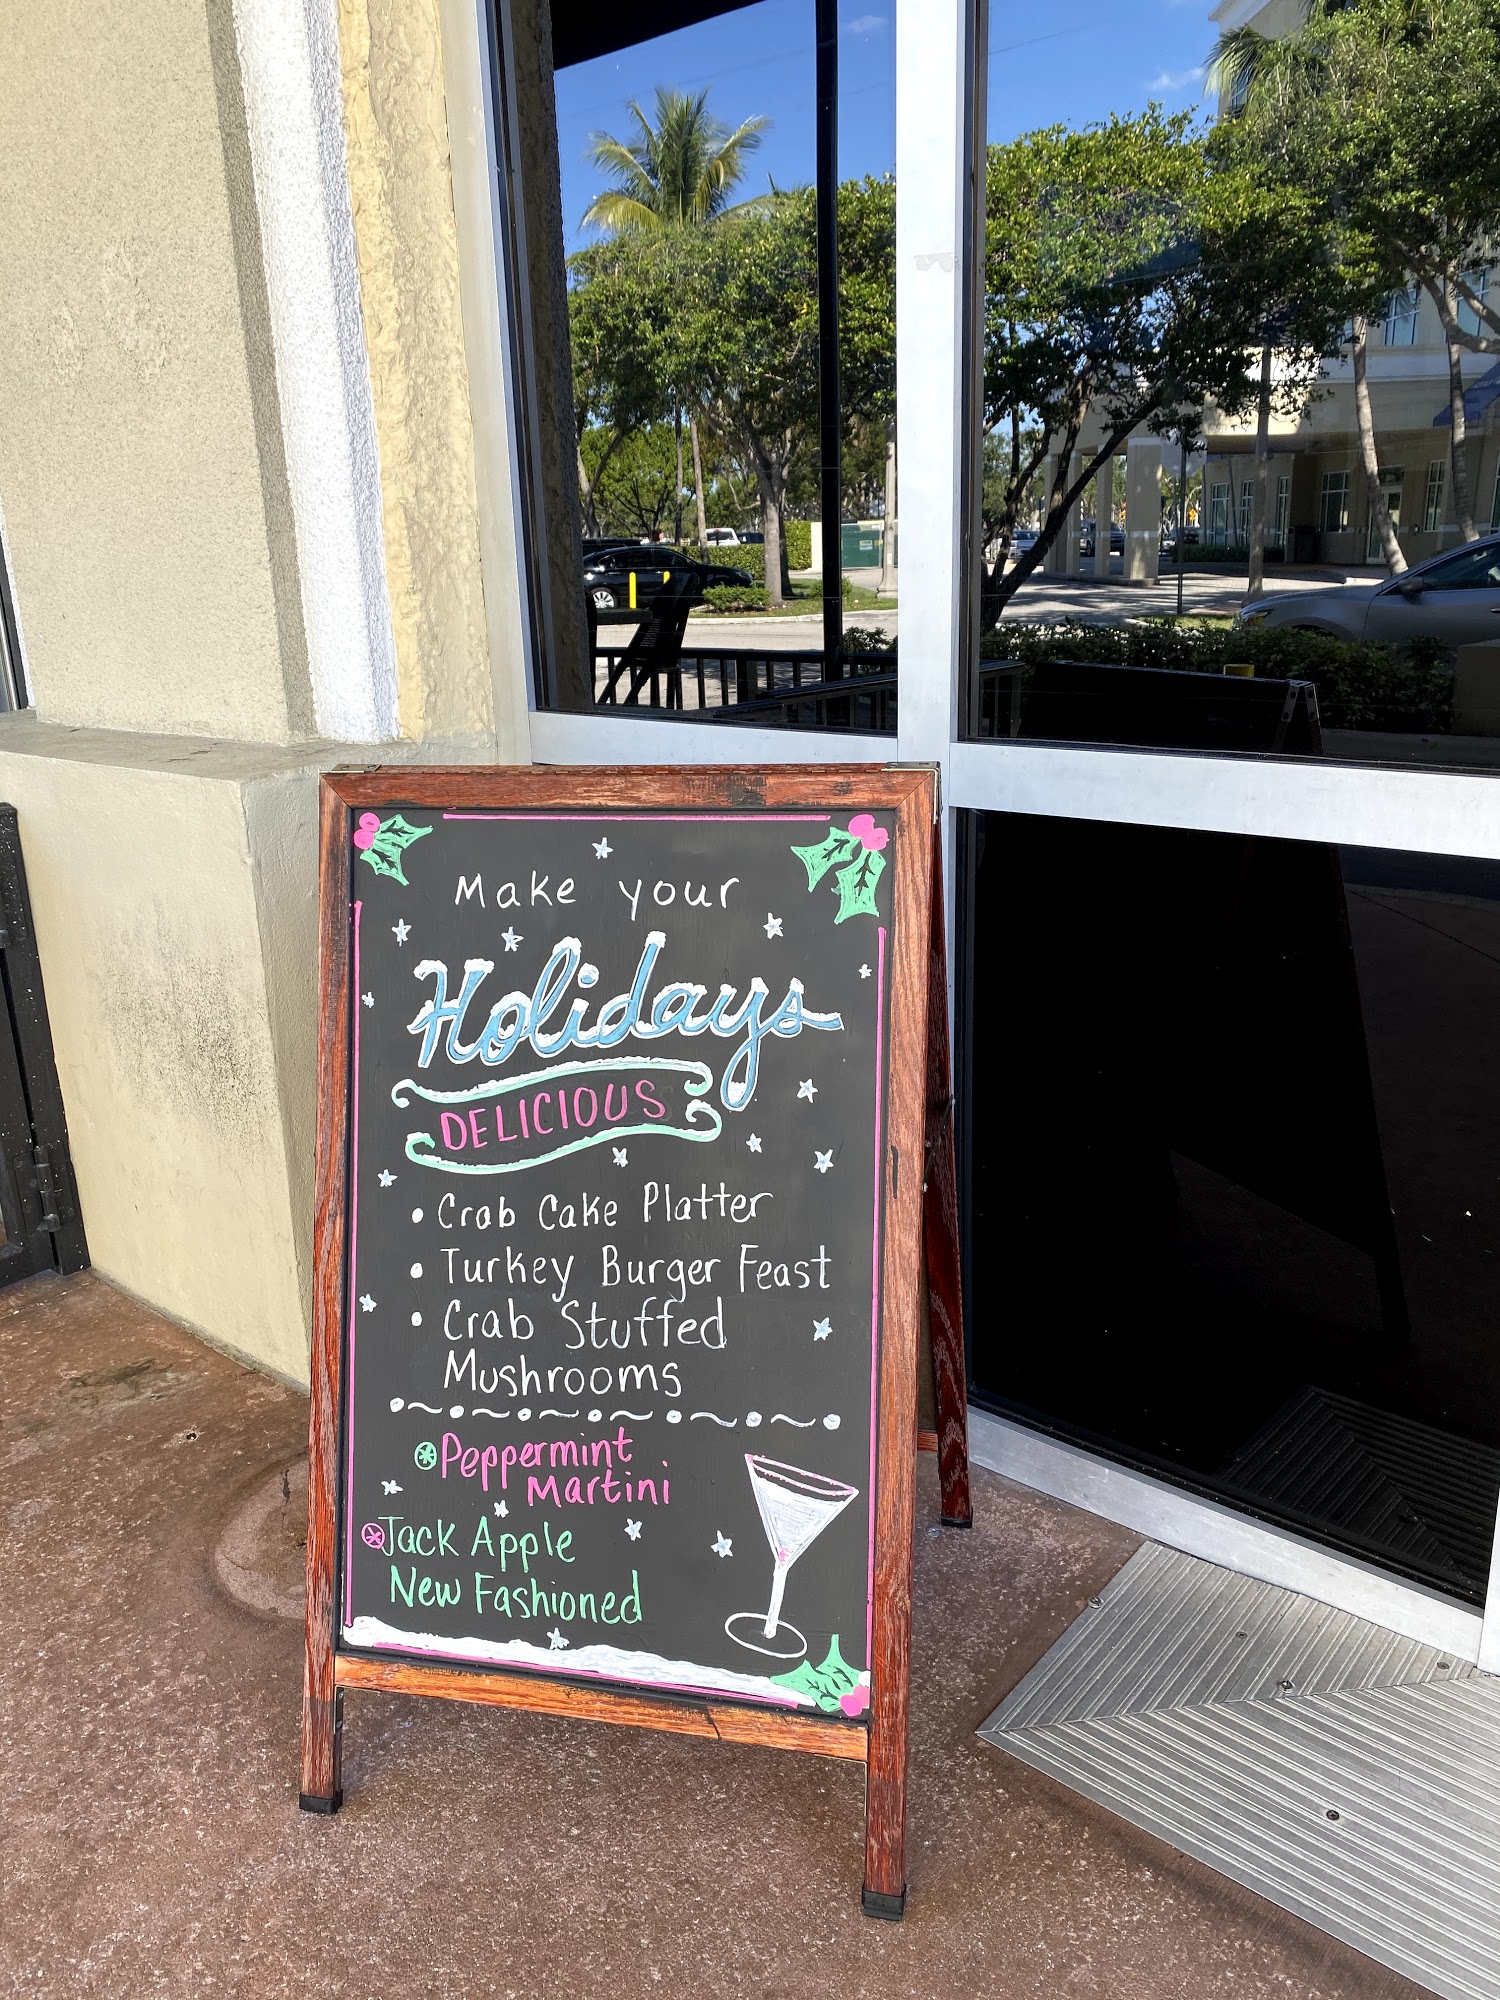 Make your
Holidays
DELICIOUS
• Crab Cake Platter
• Turkey Burger Feast
• Crab Stuffed
Mushrooms
Peppermint
Martini
Jack Apple
New Fashioned